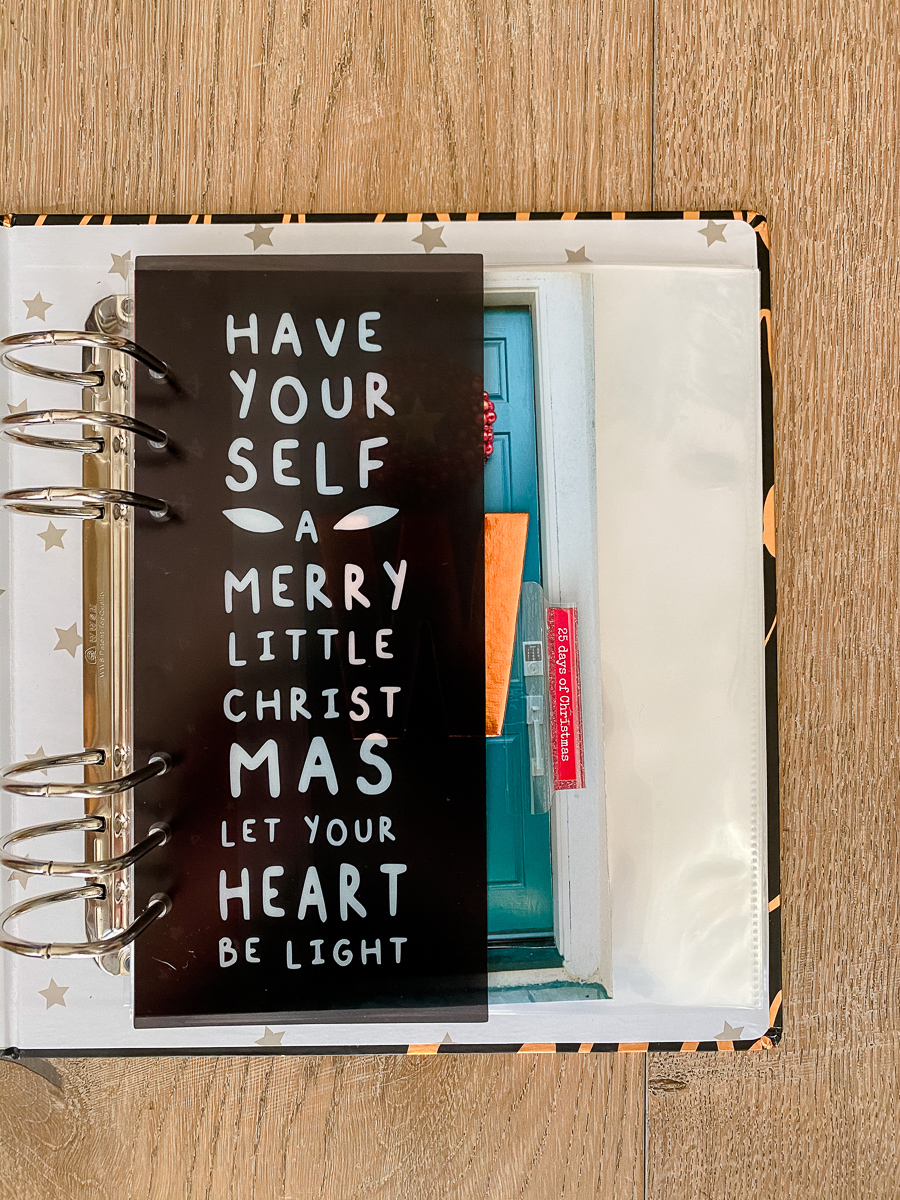 HAVE
YOUR
SELF
A
MERRY
LITTLE
CHRIST
MAS
LET YOUR
HEART
BE LIGHT
25 days of Christmas